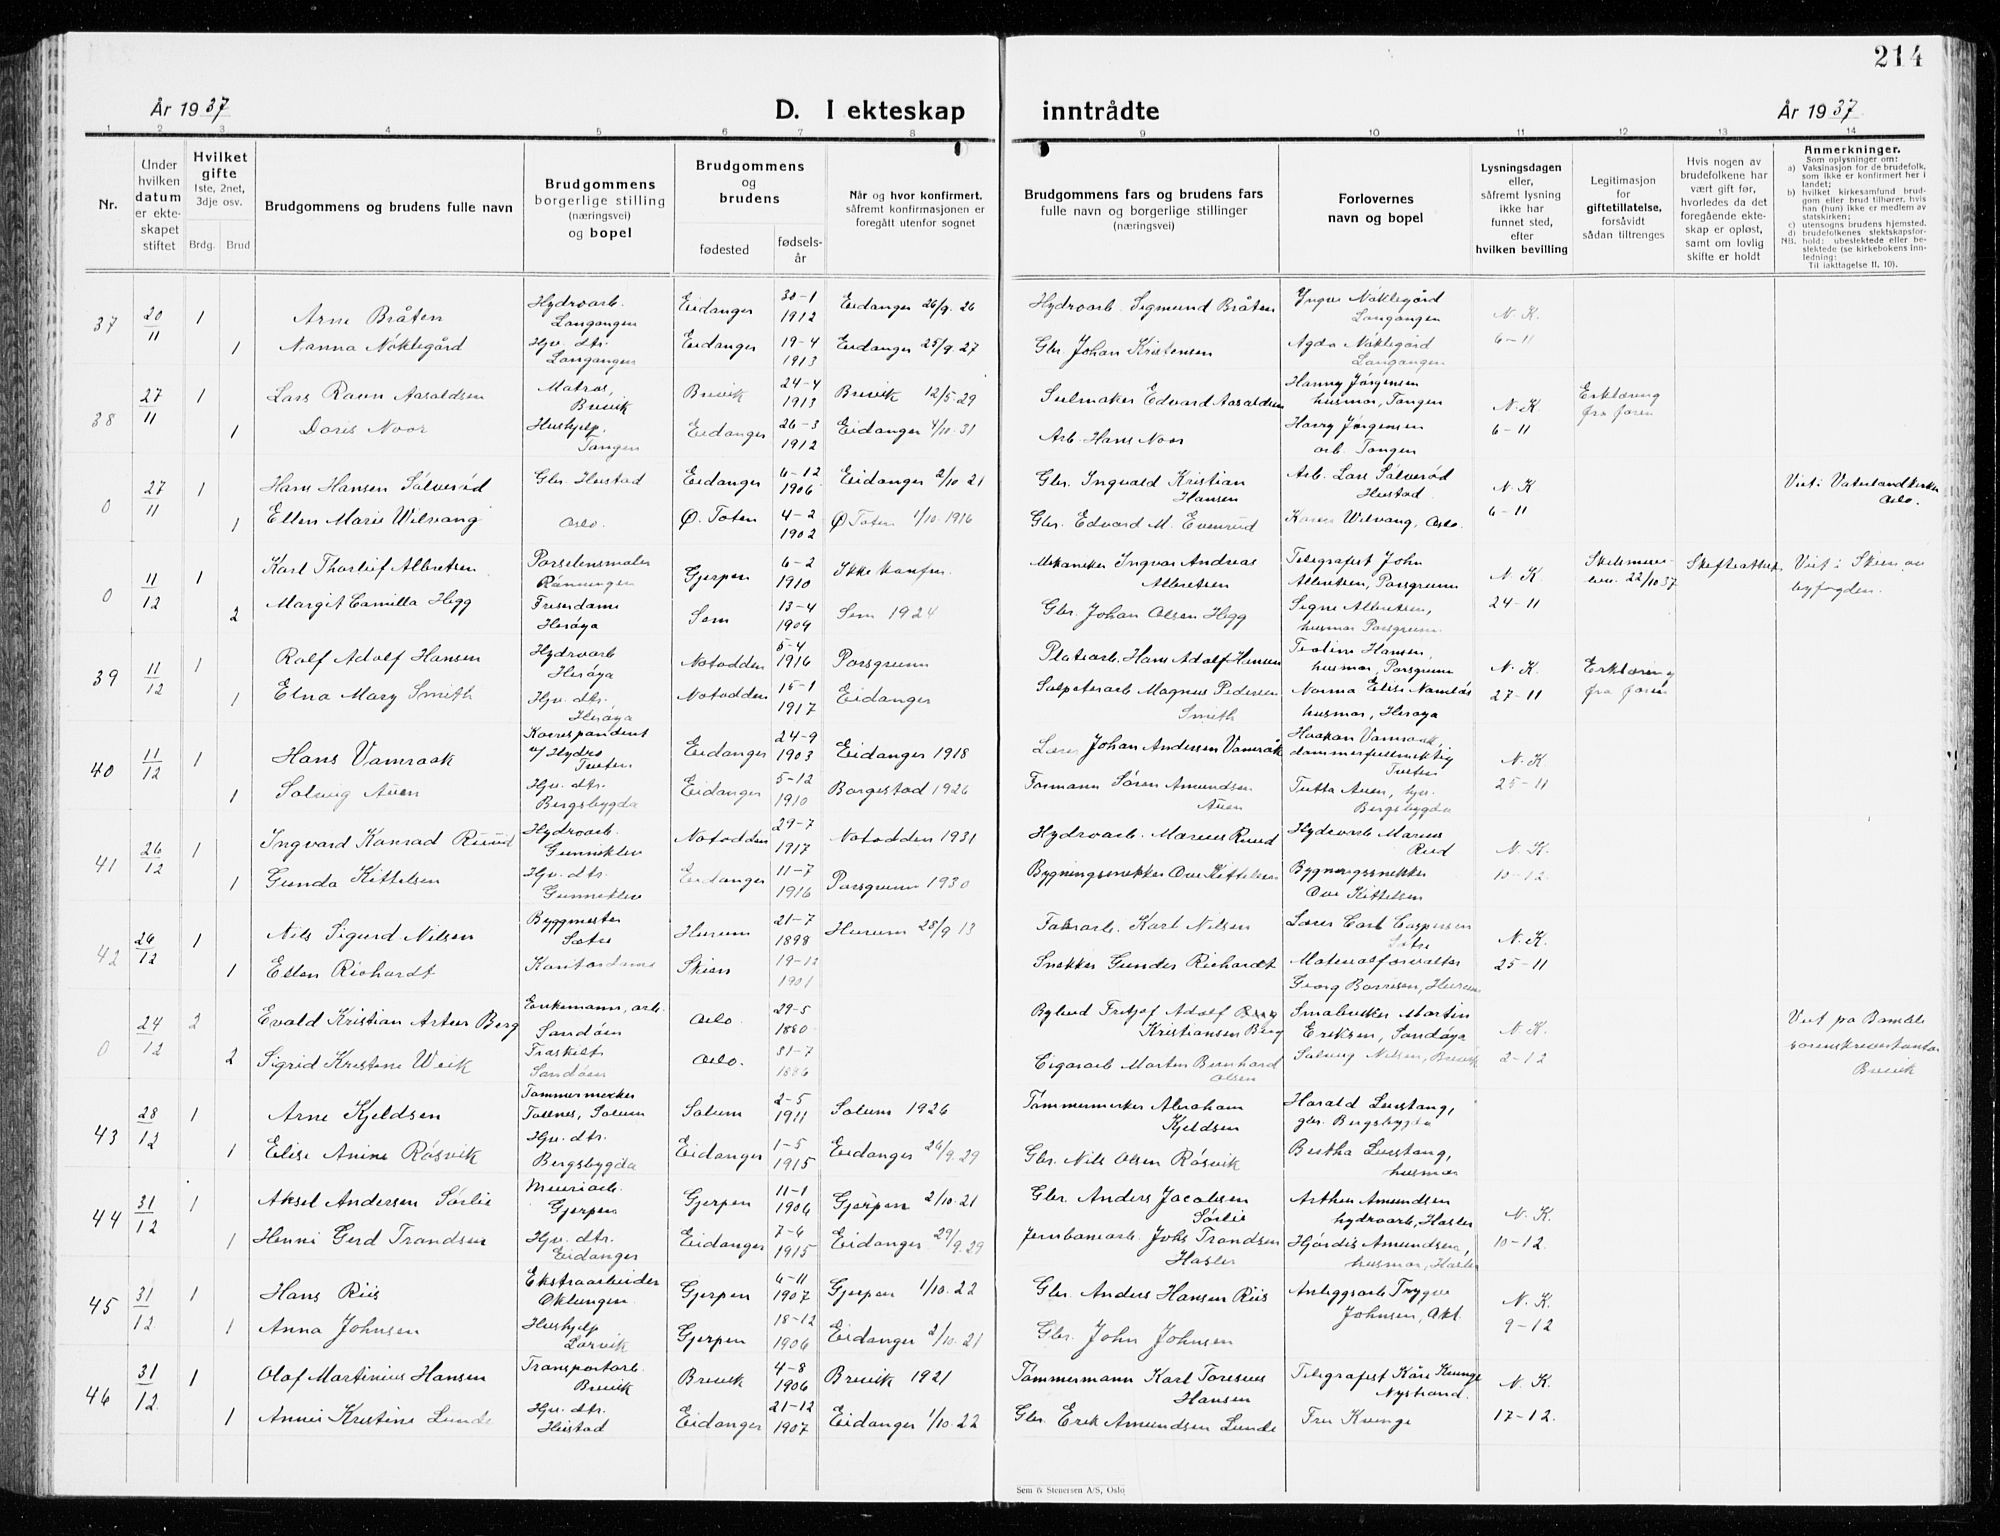 214
År 1937
D. I ekteskap inntrådte
År 1937
1 2 3 4 5 6 7 8 9 10 11 12 13 14
Nr.
Under hvilken datum er ekteskapet stiftet
Hvilket gifte 1ste, 2net, 3dje osv.
Brdg. Brud
Brudgommens og brudens fulle navn
Brudgommens borgerlige stilling (næringsvei) og bopel
Brudgommens og brudens
fødested
fødselsår
Når og hvor konfirmert, såfremt konfirmasjonen er foregått utenfor sognet
Brudgommens fars og brudens fars fulle navn og borgerlige stillinger (næringsvei)
Forlovernes navn og bopel
Lysningsdagen eller, såfremt lysning ikke har funnet sted, efter hvilken bevilling
Legitimasjon for giftetillatelse, forsåvidt sådan tiltrenges
Hvis nogen av brudefolkene har vært gift før, hvorledes da det foregående ekteskap er opløst, samt om lovlig skifte er holdt
Anmerkninger.
Som oplysninger om:
a) Vaksinasjon for de brudefolk, som ikke er konfirmert her i landet;
b) hvilket kirkesamfund brudgom eller brud tilhører, hvis han (hun) ikke er medlem av statskirken;
c) utensogns brudens hjemsted.
d) brudefolkenes slektskapsforhold: ubeslektede eller beslektede (se kirkebokens innledning:
NB.
Til iakttagelse 11, 10).
37 20/11 1 Arne Bråten Hydroarb. Langangen Eidanger 30-1 1912 Eidanger 26/9. 26 Hydroarb. Sigmund Bråten Yngve Nøklegård Langangen N. K. 6-11
1 Nanna Nøklegård Hjv. dtr. Langangen Eidanger 19-4 1913 Eidanger 25/9. 27 Gbr. Johan Kristensen Agda Nøklegård Langangen
38 27/11 1 Lars Ravn Aaraldsen Matros, Brevik Brevik 24-4 1913 Brevik 12/5. 29 Seilmaker Edvard Aaraldsen Hanny Jørgensen husmor, Tangen N. K. 6-11 Erklæring fra foren
1 Doris Noor Hushjelp, Tangen Eidanger 26-3 1912 Eidanger 4/10. 31 Arb. Hans Noor Harry Jørgensen arb. Tangen
0 27/11 1 Hans Hansen Sølverød Gbr. Heistad Eidanger 6-12 1906 Eidanger 2/10. 21 Gbr. Ingvald Kristian Hansen Arb. Lars Sølverød Heistad N. K 6-11 Viet i Vaterlandkirke Oslo.
1 Ellen Marie Wilvang Oslo. Ø. Toten 4-2 1902 Ø Toten 1/10. 1916 Gbr. Edvard M. Evenrud Karen Wilvang, Oslo.
0 11/12 1 Karl Thorleif Albretsen Porselensmaler Rønningen Gjerpen 6-2 1910 Ikke konfir. Mekaniker Ingvar Andreas Albretsen Telegrafist John Albretsen, Porsgrunn N. K 24-11 22/10 37 Skifteattest Viet i Skien av byfogden.
2 Margit Camilla Hegg Herøya Sem 13-4 1904 Sem 1924 Gbr. Johan Olsen Hegg Signe Albretsen, husmor Porsgrunn
39 11/12 1 Rolf Adolf Hansen Hydroarb Herøya Notodden 5-4 1916 Porsgrunn Platearb. Hans Adolf Hansen Teoline Hansen, husmor, Porsgrunn N. K. 27-11 Erklæring fra foren
1 Elna Mary Smith Hjv. dtr. Herøya Notodden 15-1 1917 Eidanger Salpeterarb Magnus Pedersen Smith Norma Elise Namløs husmor, Herøya
40 11/12 1 Hans Vamraak Korrespondent v/ Hydro Tveten Eidanger 24-9 1903 Eidanger 1918 Lærer Johan Andersen Vamråk Haakon Vamraak, dommerfullmektig Tveten N. K. 25-11
1 Solveig Auen Hjv. dtr. Bergsbygda Eidanger 5-12 1910 Borgestad 1926 Formann Søren Amundsen Auen Tutta Auen, hjv. Bergsbygda
41 26/12 1 Ingvard Konrad Ruud Hydroarb. Gunneklev Notodden 29-7 1917 Notodden 1931 Hydroarb. Marius Ruud Hydroarb Marius Rud N. K. 10-12.
1 Gunda Kittelsen Hjv. dtr. Gunneklev Eidanger 11-7 1916 Porsgrunn 1930 Bygningssnekker Ove Kittelsen Bygningssnekker Ove Kittelsen
42 26/12 1 Nils Sigurd Nilsen Byggmester Sætre Hurum 21-7 1898 Hurum 28/9 13 Fabrarb. Karl Nilsen Lærer Carl Caspersen Sætre N. K. 25-11
1 Ellen Richardt Kontordame Skien 19-12 1901 Snekker Gunder Richardt Materialforvalter Georg Borresen, Hurum
0 24/12 2 Evald Kristian Artur Berg Enkemann, arb. Sandøen Oslo. 29-5 1880 Bybud Fritjof Adolf Kristiansen Berg Småbruker Martin Eriksen, Sandøya N. K. 2-12 Viet på Bamble sorenskriverkontor Brevik
2 Sigrid Kristine Weik Fraskilt Sandøen Oslo. 31-7 1886 Cigararb Morten Bernhard Olsen Solveig Nilsen, Brevik
43 28/12 1 Arne Kjeldsen Tømmermerker Tollnes, Solum Solum 2-5 1911 Solum 1926 Tømmermerker Abraham Kjeldsen Harald Leustang, gbr. Bergsbygda
1 Elise Anine Røsvik Hjv. dtr. Bergsbygda Eidanger 1-5 1915 Eidanger 29/9. 29 Gbr. Nils Olsen Røsvik Bertha Leustang, husmor
44 31/12 1 Aksel Andersen Sørlie Meieriarb. Gjerpen Gjerpen 11-1 1906 Gjerpen 2/10. 21 Gbr. Anders Jacobsen Sørlie Arthur Amundsen hydroarb, Hasler N. K. 10-12.
1 Henni Gerd Trondsen Hjv. dtr. Eidanger Eidanger 7-6 1915 Eidanger 29/9. 29 Jernbanearb. Johs Trondsen Hasler Hjørdis Amundsen, husmor, Hasler
45 31/12 1 Hans Riis Ekstraarbeider Oklungen. Gjerpen 6-11 1907 Gjerpen 1/10. 22 Gbr. Anders Hansen Riis Anleggsarb Trygve Johnsen, Okl. N. K. 9-12
1 Anna Johnsen Hushjelp Larvik Gjerpen 18-12 1906 Eidanger 2/10. 21 Gbr. John Johnsen
46 31/12. 1 Olaf Martinius Hansen Transportarb. Brevik Brevik 4-8 1906 Brevik 1921 Tømmermann Karl Toresius Hansen Telegrafist Kåre Kvinge Nystrand. N. K. 17-12.
1 Anni Kristine Lunde Hjv. dtr. Heistad Eidanger 21-12 1907 Eidanger 1/10. 22 Gbr. Erik Amundsen Lunde Fru Kvinge
Sem & Stenersen A/S, Oslo